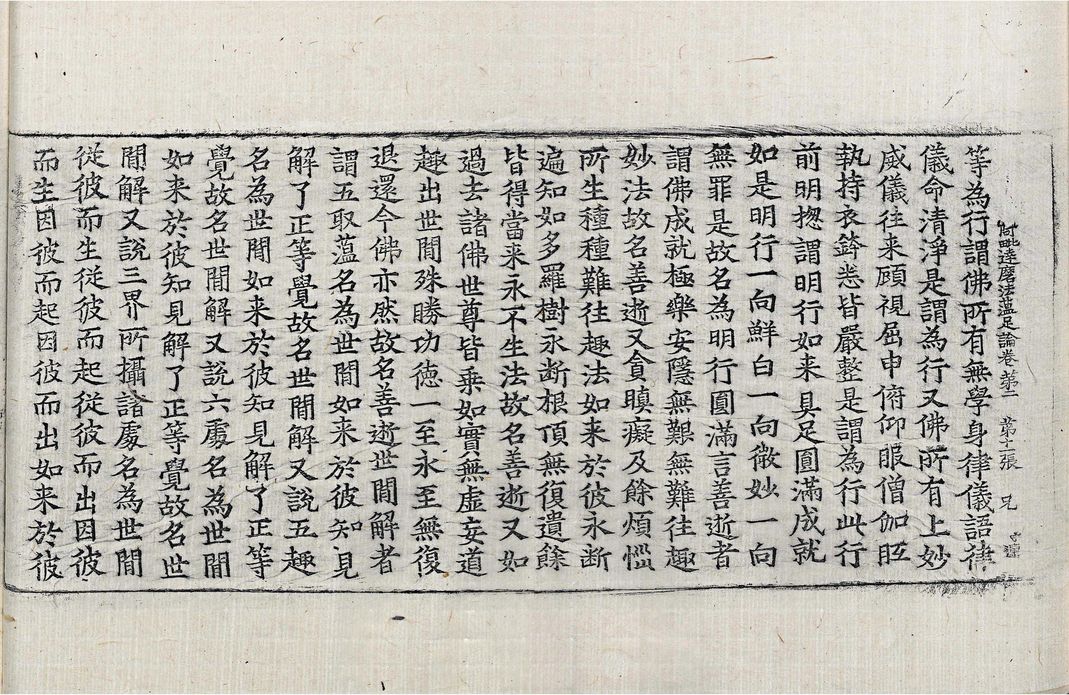 阿毗達磨法蘊足論卷第二 第十二張 兄
等為行謂佛所有無學身律儀語律
儀命清淨是謂為行又佛所有上妙
威儀往来顧視屈申俯仰服僧伽胝
執持衣鉢悉皆嚴整是謂為行此行
前明揔謂明行如来具足圓滿成就
如是明行一向鮮白一向微妙一向
無罪是故名為明行圓滿言善逝者
謂佛成就極樂安隱無艱無難往趣
妙法故名善逝又貪瞋癡及餘煩惱
所生種種難往趣法如来於彼永断
遍知如多羅樹永断根頂無復遺餘
皆得當来永不生法故名善逝又如
過去諸佛世尊皆乗如實無虚妄道
趣出世間殊勝功徳一至永至無復
退還今佛亦然故名善逝世間解者
謂五取蘊名為世間如来於彼知見
解了正等覺故名世間解又說五趣
名為世間如来於彼知見解了正等
覺故名世間解又說六處名為世間
如来於彼知見解了正等覺故名世
間解又說三界所攝諸處名為世間
從彼而生從彼而起從彼而出因彼
而生因彼而起因彼而出如来於彼